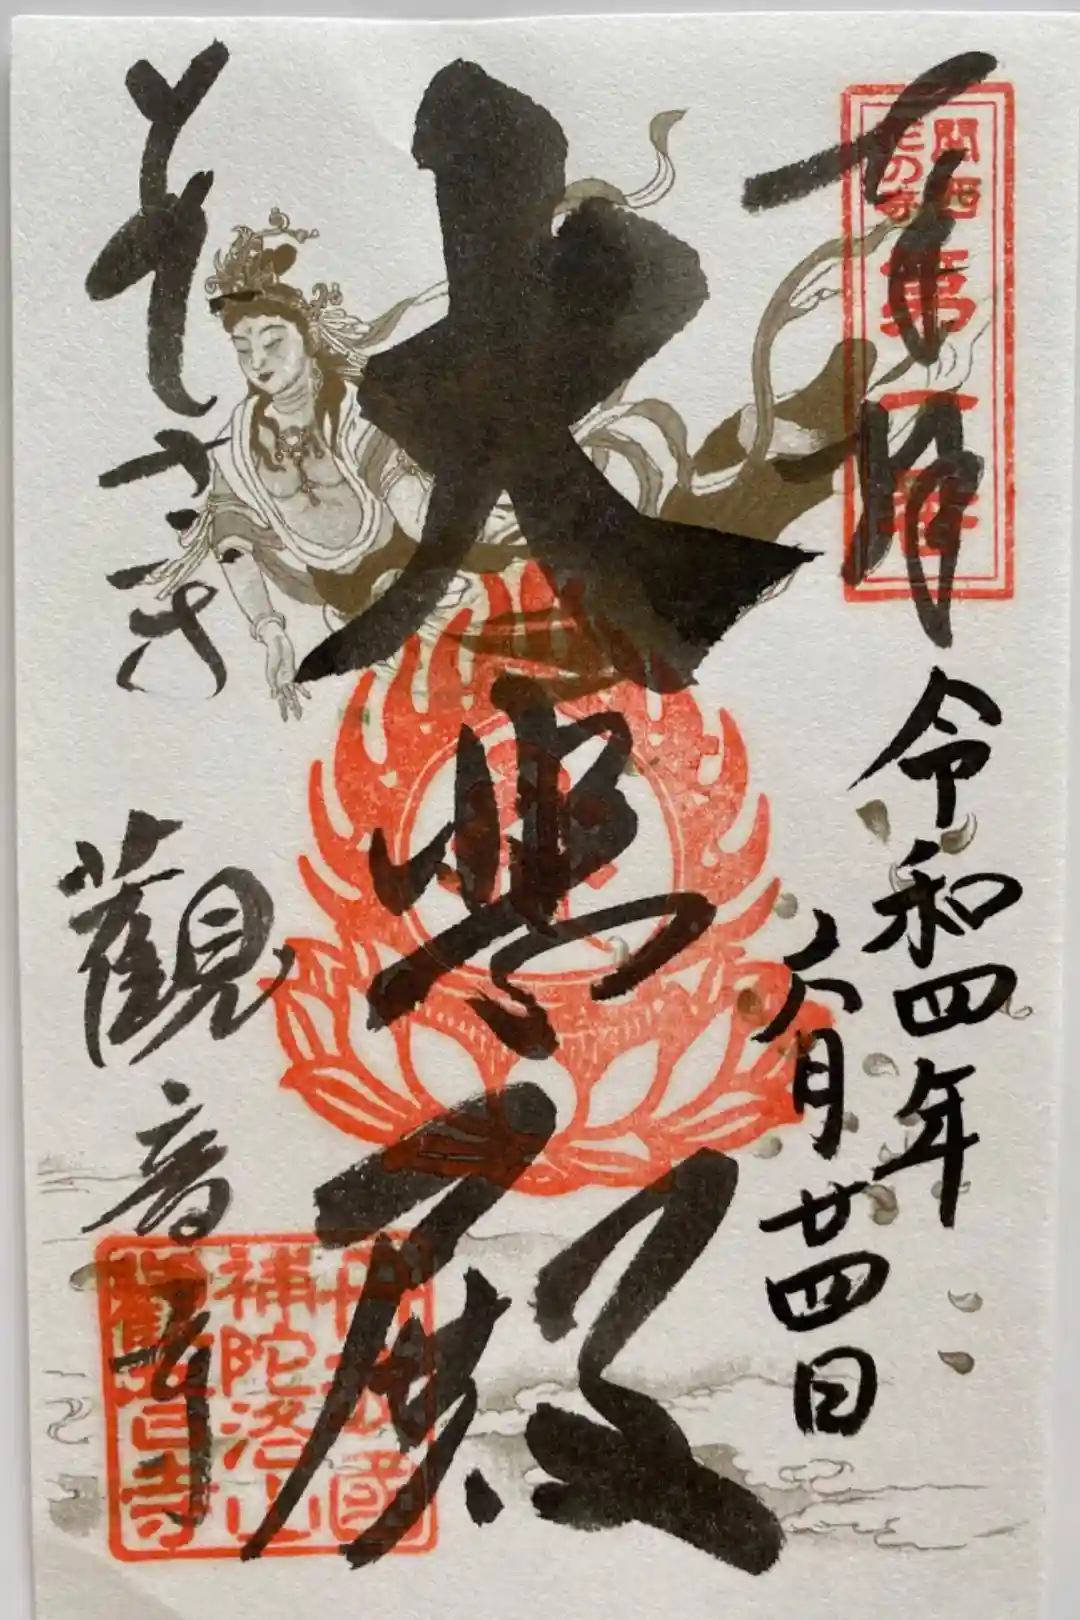 奉拝
関西
花の寺
第一番
令和四年
六月廿四日
大悲殿
觀音寺
丹波國
補陀洛山
觀音寺